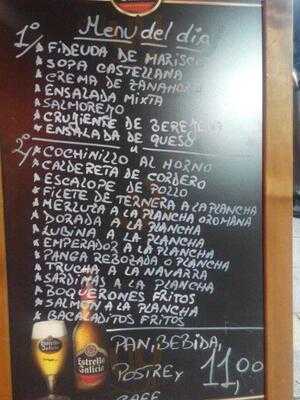 Menu del dia
1º/
* FIDEUDA DE MARISCO
* SOPA CASTELLANA
* CREMA DE ZANAHORIA
* ENSALADA MIXTA
* SALMOREJO
* CRUJIENTE DE BERENJENA
* ENSALADA DE QUESO
2º/
* COCHINILLO AL HORNO
* CALDERETA DE CORDERO
* ESCALOPE DE POLLO
* FILETE DE TERNERA A LA PLANCHA
* MERLUZA A LA PLANCHA O ROMANA
* DORADA A LA PLANCHA
* LUBINA A LA PLANCHA
* EMPERADOR A LA PLANCHA
* PANGA REBOZADA O PLANCHA
* TRUCHA A LA NAVARRA
* SARDINAS A LA PLANCHA
* BOQUERONES FRITOS
* SALMON A LA PLANCHA
* BACALADITOS FRITOS
PAN, BEBIDA,
POSTRE Y
CAFE
11,00
Estrella
Galicia